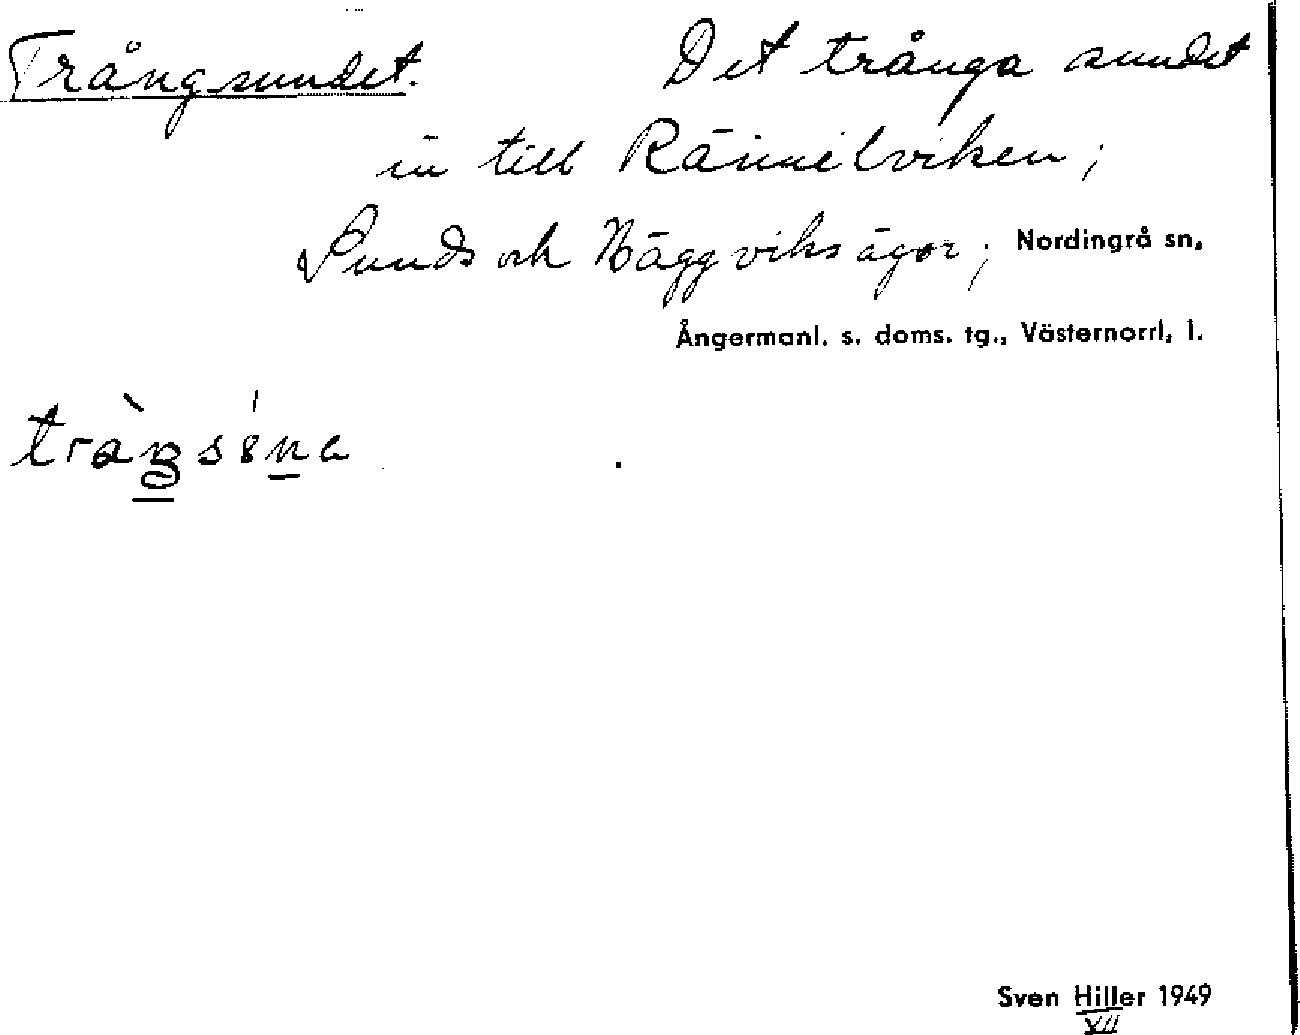 Trångsundet. Det trånga sundet
in till Rännilviken;
Sunds och Häggviks ägor; Nordingrå sn,
Ångermanl. s. doms. tg., Västernorrl, l.
Sven Hiller 1949
VII